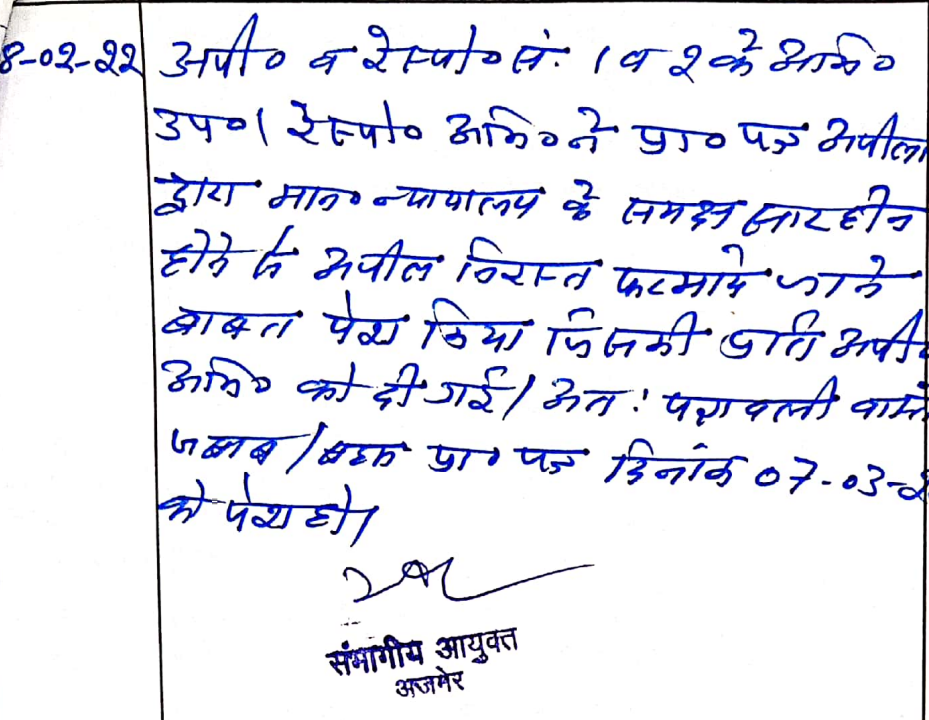 8-02-22 अपी० व रेस्पो० सं. 1 व 2 के अभि०
उप०। रेस्पो० अभि० ने प्रा० पत्र अपीला
द्वारा मान० न्यायालय के समक्ष सारहीन
होने से अपील निरस्त फरमाये जाने
बाबत पेश किया जिसकी प्रति अपी०
अभि० को दी गई। अतः पत्रावली वास्ते
जबाब/बहस प्रा० पत्र दिनांक 07-03-2
को पेश हो।
संभागीय आयुक्त
अजमेर